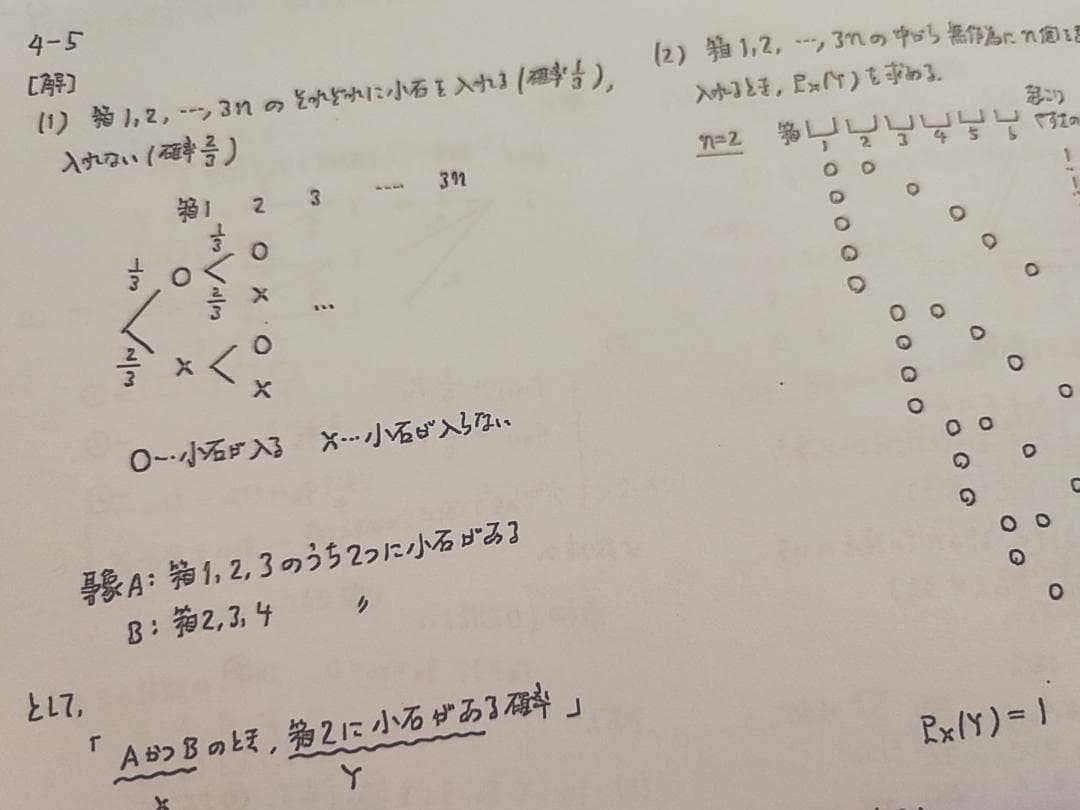 4-5
[解]
(1) 箱1,2,…,3nのそれぞれに小石を入れる(確率1/3),
入れない(確率2/3)
箱1 2 3 …. 3n
1/3 ○ 1/3 ○
2/3 × …
2/3 × ○
×
○…小石が入る ×…小石が入らない
事象A:箱1,2,3のうち2つに小石がある
B:箱2,3,4 〃
として,
「AかつBのとき,箱2に小石がある確率」
X Y
(2) 箱1,2,…,3nの中から無作為にn個を
入れるとき,Px(Y)を求める.
n=2 箱 1 2 3 4 5 6
起こり
やすさの
Px(Y)=1